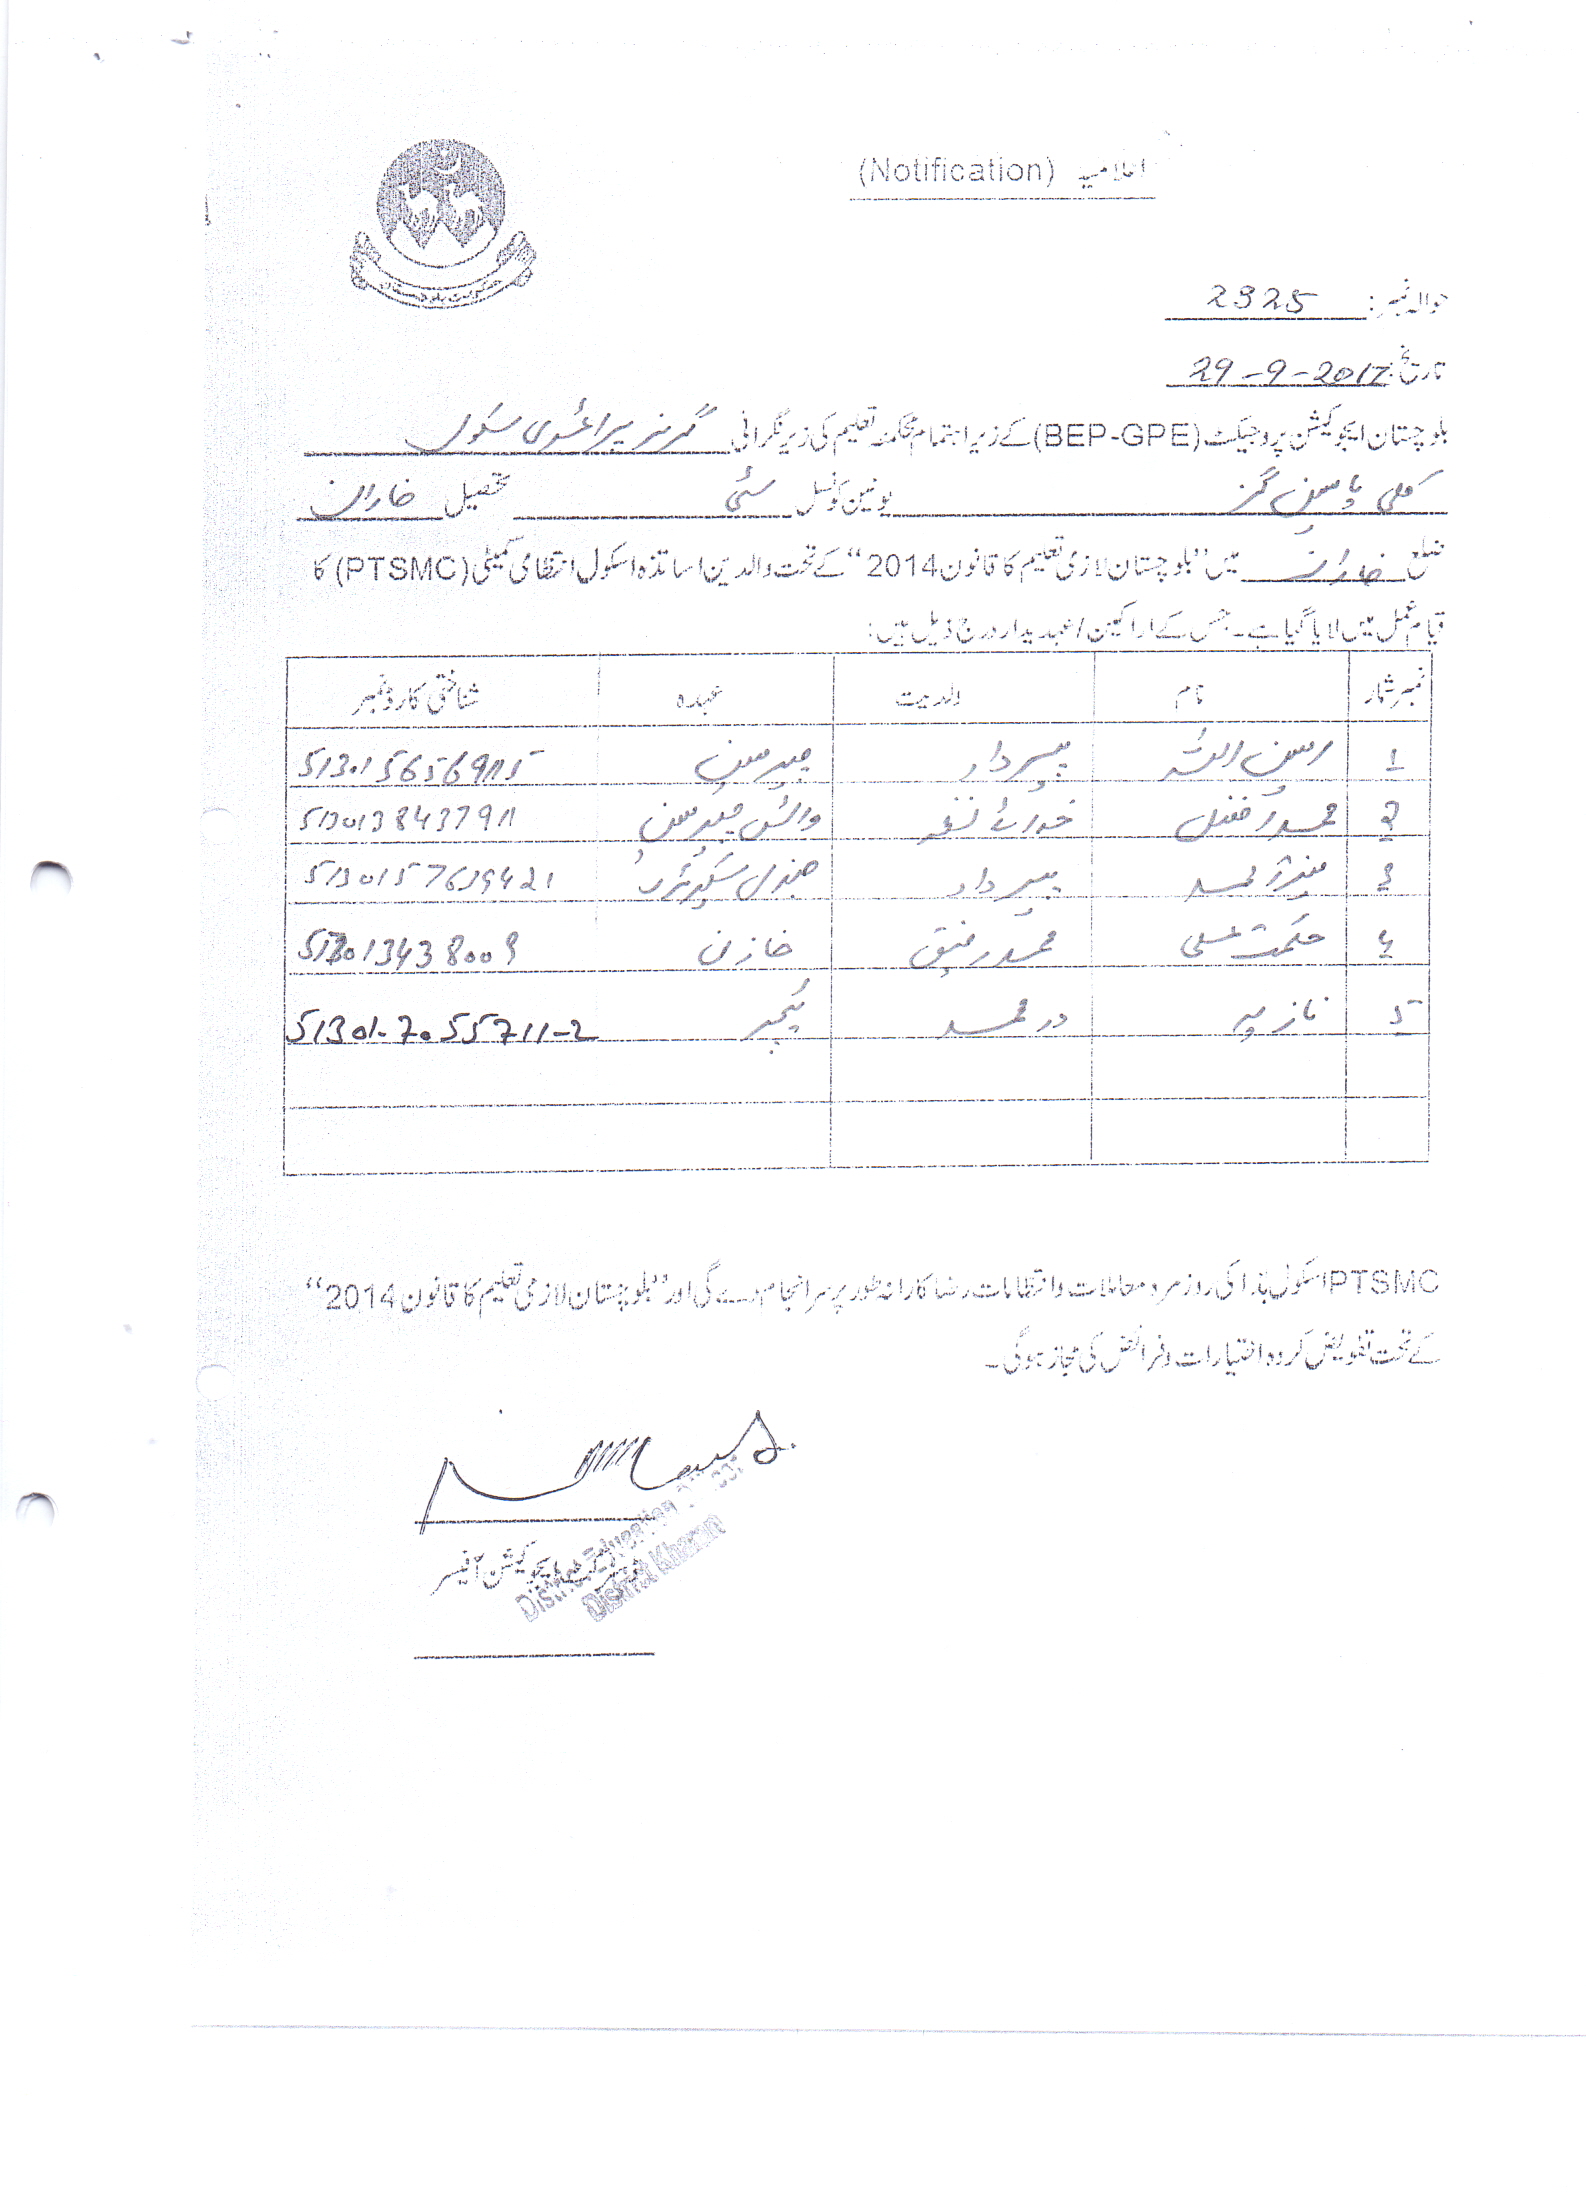 اعلامیہ (Notification)
حکومت بلوچستان
حوالہ نمبر: 2925
تاریخ: 29-9-2017
بلوچستان ایجوکیشن پروجیکٹ (BEP-GPE) کے زیر اہتمام محکمہ تعلیم کی زیر نگرانی گرلز پرائمری سکول
کلی یاسین گز یونین کونسل تحصیل خاران
ضلع خاران میں "بلوچستان لازمی تعلیم کا قانون 2014" کے تحت والدین اساتذہ اسکول انتظامی کمیٹی (PTSMC) کا
قیام عمل میں لایا گیا ہے۔ جس کے اراکین / عہدیدار درج ذیل ہیں:
نمبر شمار نام ولدیت عہدہ شناختی کارڈ نمبر
۱ پیرداد چیرمین
۲ محمد افضل وائس چیرمین 5130138437911
۳ پیرداد جنرل سیکرٹری
۴ حکمت علی محمد رفیق خازن 513013438009
۵ ناز پیر در محمد ٹیچر 51301-7055711-2
PTSMC اسکول ہذا کی روزمرہ معاملات و انتظامات رضاکارانہ طور پر سرانجام دے گی اور "بلوچستان لازمی تعلیم کا قانون 2014"
کے تحت تفویض کردہ اختیارات و فرائض کی مجاز ہوگی۔
ڈسٹرکٹ ایجوکیشن آفیسر
District Education Officer
District Kharan